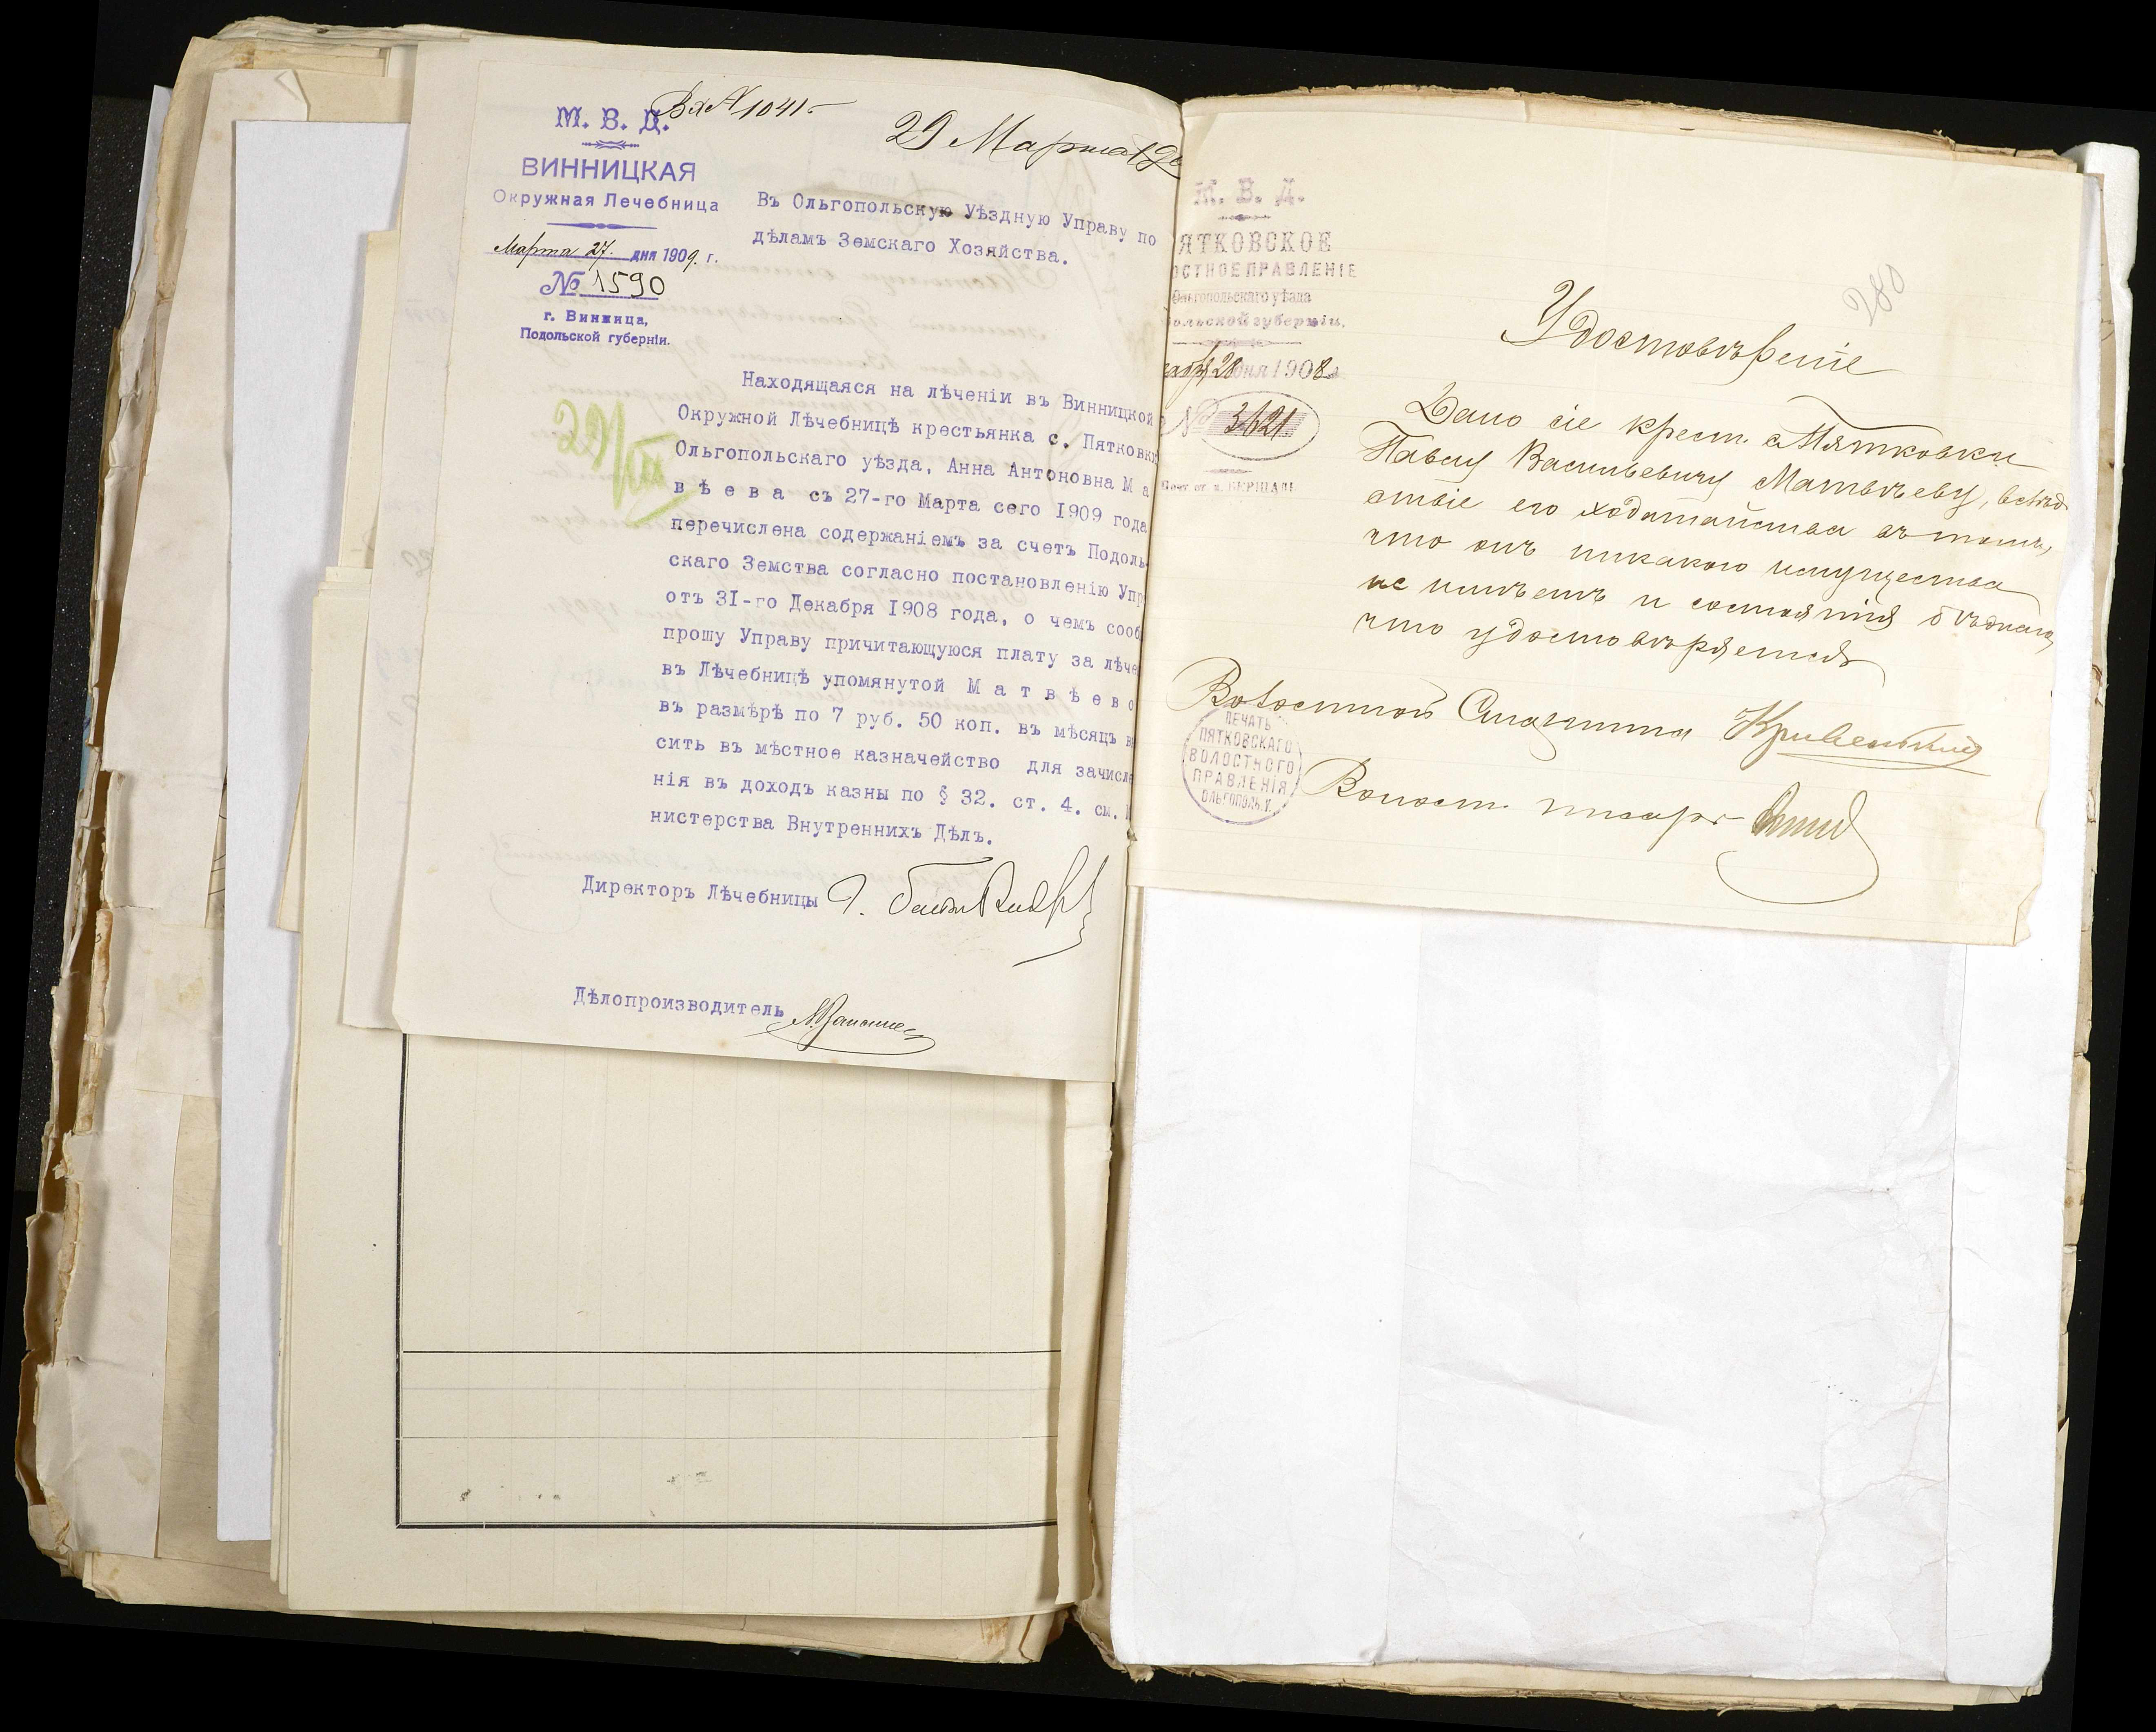 Вх № 1041
29 Марта 190
М. В. Д.
ВИННИЦКАЯ
Окружная Лечебница
Марта 27. дня 1909. г.
№ 1590
г. Винница,
Подольской губерніи.
Въ Ольгопольскую Уѣздную Управу по
дѣламъ Земскаго Хозяйства.
29/III
Находящаяся на лѣченіи въ Винницкой
Окружной Лѣчебницѣ крестьянка с. Пятковки
Ольгопольскаго уѣзда, Анна Антоновна М а
в ѣ е в а съ 27-го Марта сего 1909 года
перечислена содержаніемъ за счетъ Подоль-
скаго Земства согласно постановленію Упр
отъ 31-го Декабря 1908 года, о чемъ сооб
прошу Управу причитающуюся плату за лѣче
въ Лѣчебницѣ упомянутой М а т в ѣ е в о
въ размѣрѣ по 7 руб. 50 коп. въ мѣсяцъ в
сить въ мѣстное казначейство для зачисле
нія въ доходъ казны по § 32. ст. 4. см.
нистерства Внутреннихъ Дѣлъ.
Директоръ Лѣчебницы
Дѣлопроизводитель
М. В. Д.
ЯТКОВСКОЕ
ОСТНОЕ ПРАВЛЕНІЕ
Ольгопольскаго уѣзда
ольской губерніи.
28 дня 1908
№ 3421
Почт. от. м. БЕРШАДЬ
280
Удостовѣреніе
Дано сіе крест. с. Пятковки
Павлу Васильевичу Матвѣеву, вслѣд
ствіе его ходатайства въ томъ,
что онъ никакого имущества
не имѣетъ и состоянія бѣднаго,
что удостовѣряется
Волостной Старшина Кривенький
Волост. писарь
ПЕЧАТЬ
ПЯТКОВСКАГО
ВОЛОСТНОГО
ПРАВЛЕНІЯ
ОЛЬГОПОЛЬ.У.